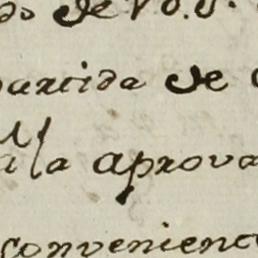 de V.S.
parcida se
la aprova
convenienc